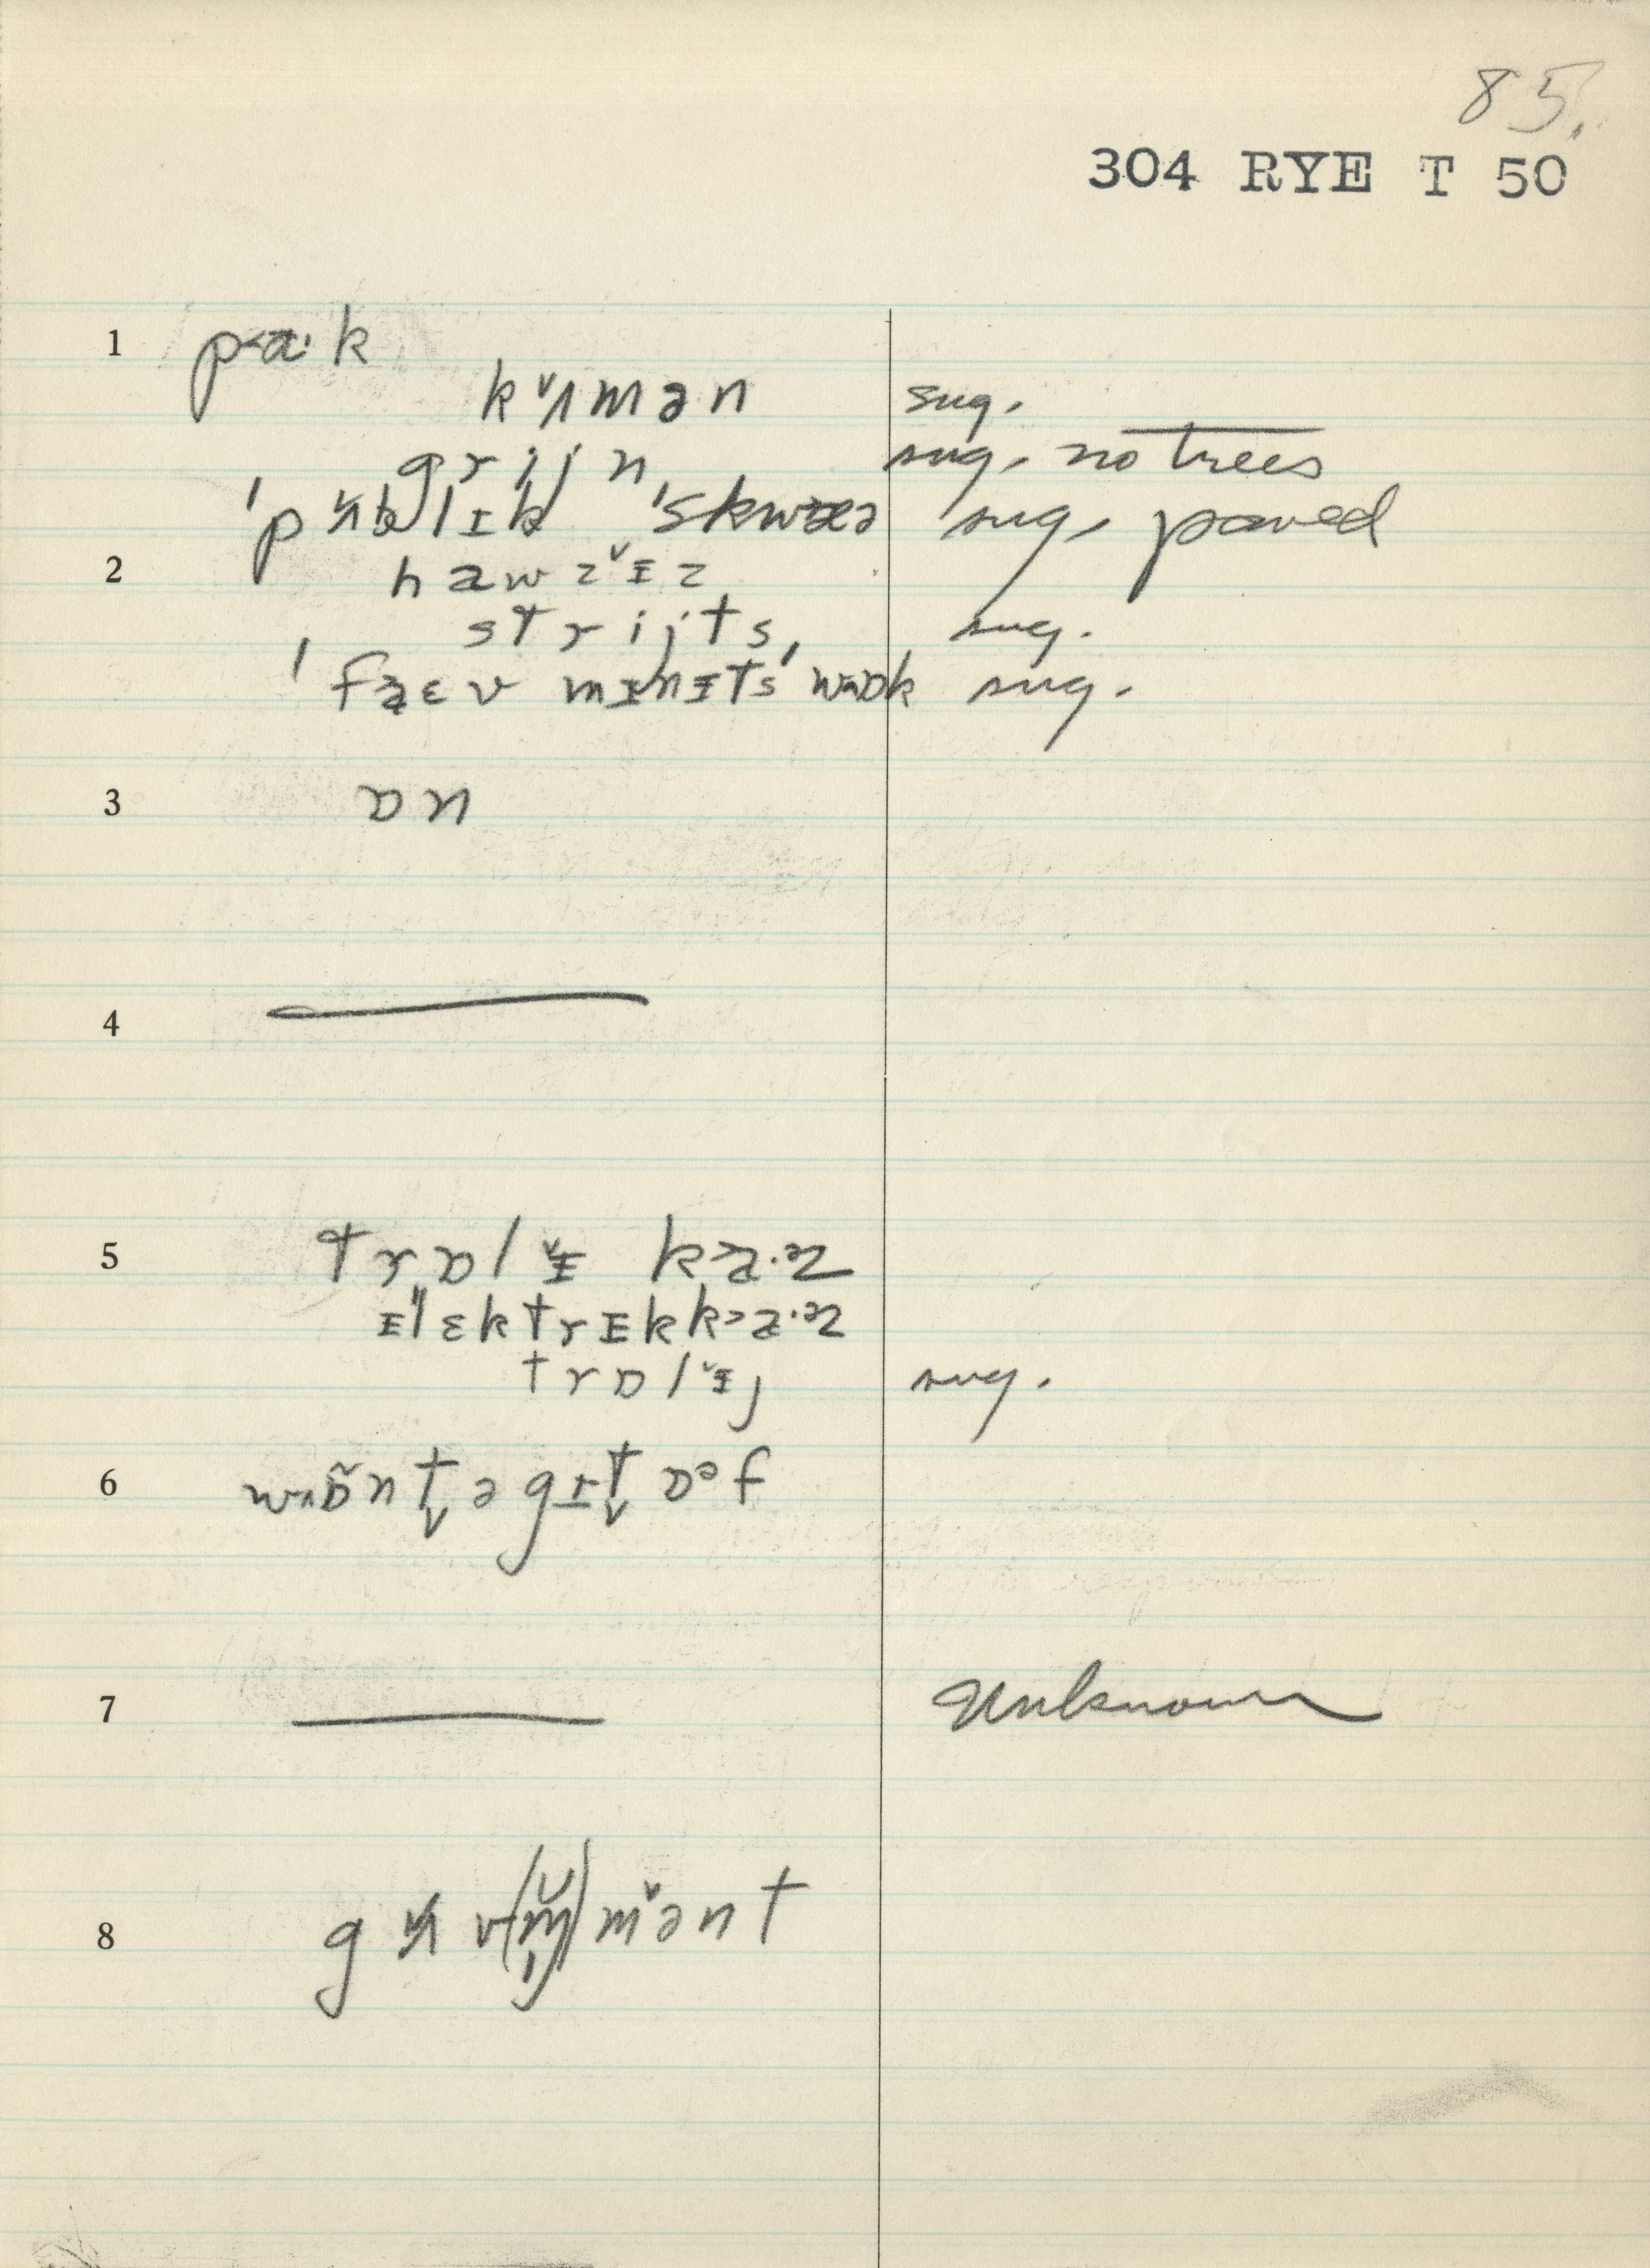 85.
304 RYE T 50
1 p<a·k
kʌ̌mən sug.
grijn sug. no trees
'pʌ̌blɪk 'skwæə sug, paved
2 hawzɪ̌z
strijts, sug.
'faɛv mɪnɪts' wɒk sug.
3 ɒn
4
5 trɒlɪ̌ k>a·ᵊz
ɪ'lɛktrɪkk>a·ᵊz
trɒlɪ̌j sug.
6 wɒ̃nt̬əgɪt̬ ɒᵊf
7 Unknown
8 gʌ̌v(m̩)mə̌nt